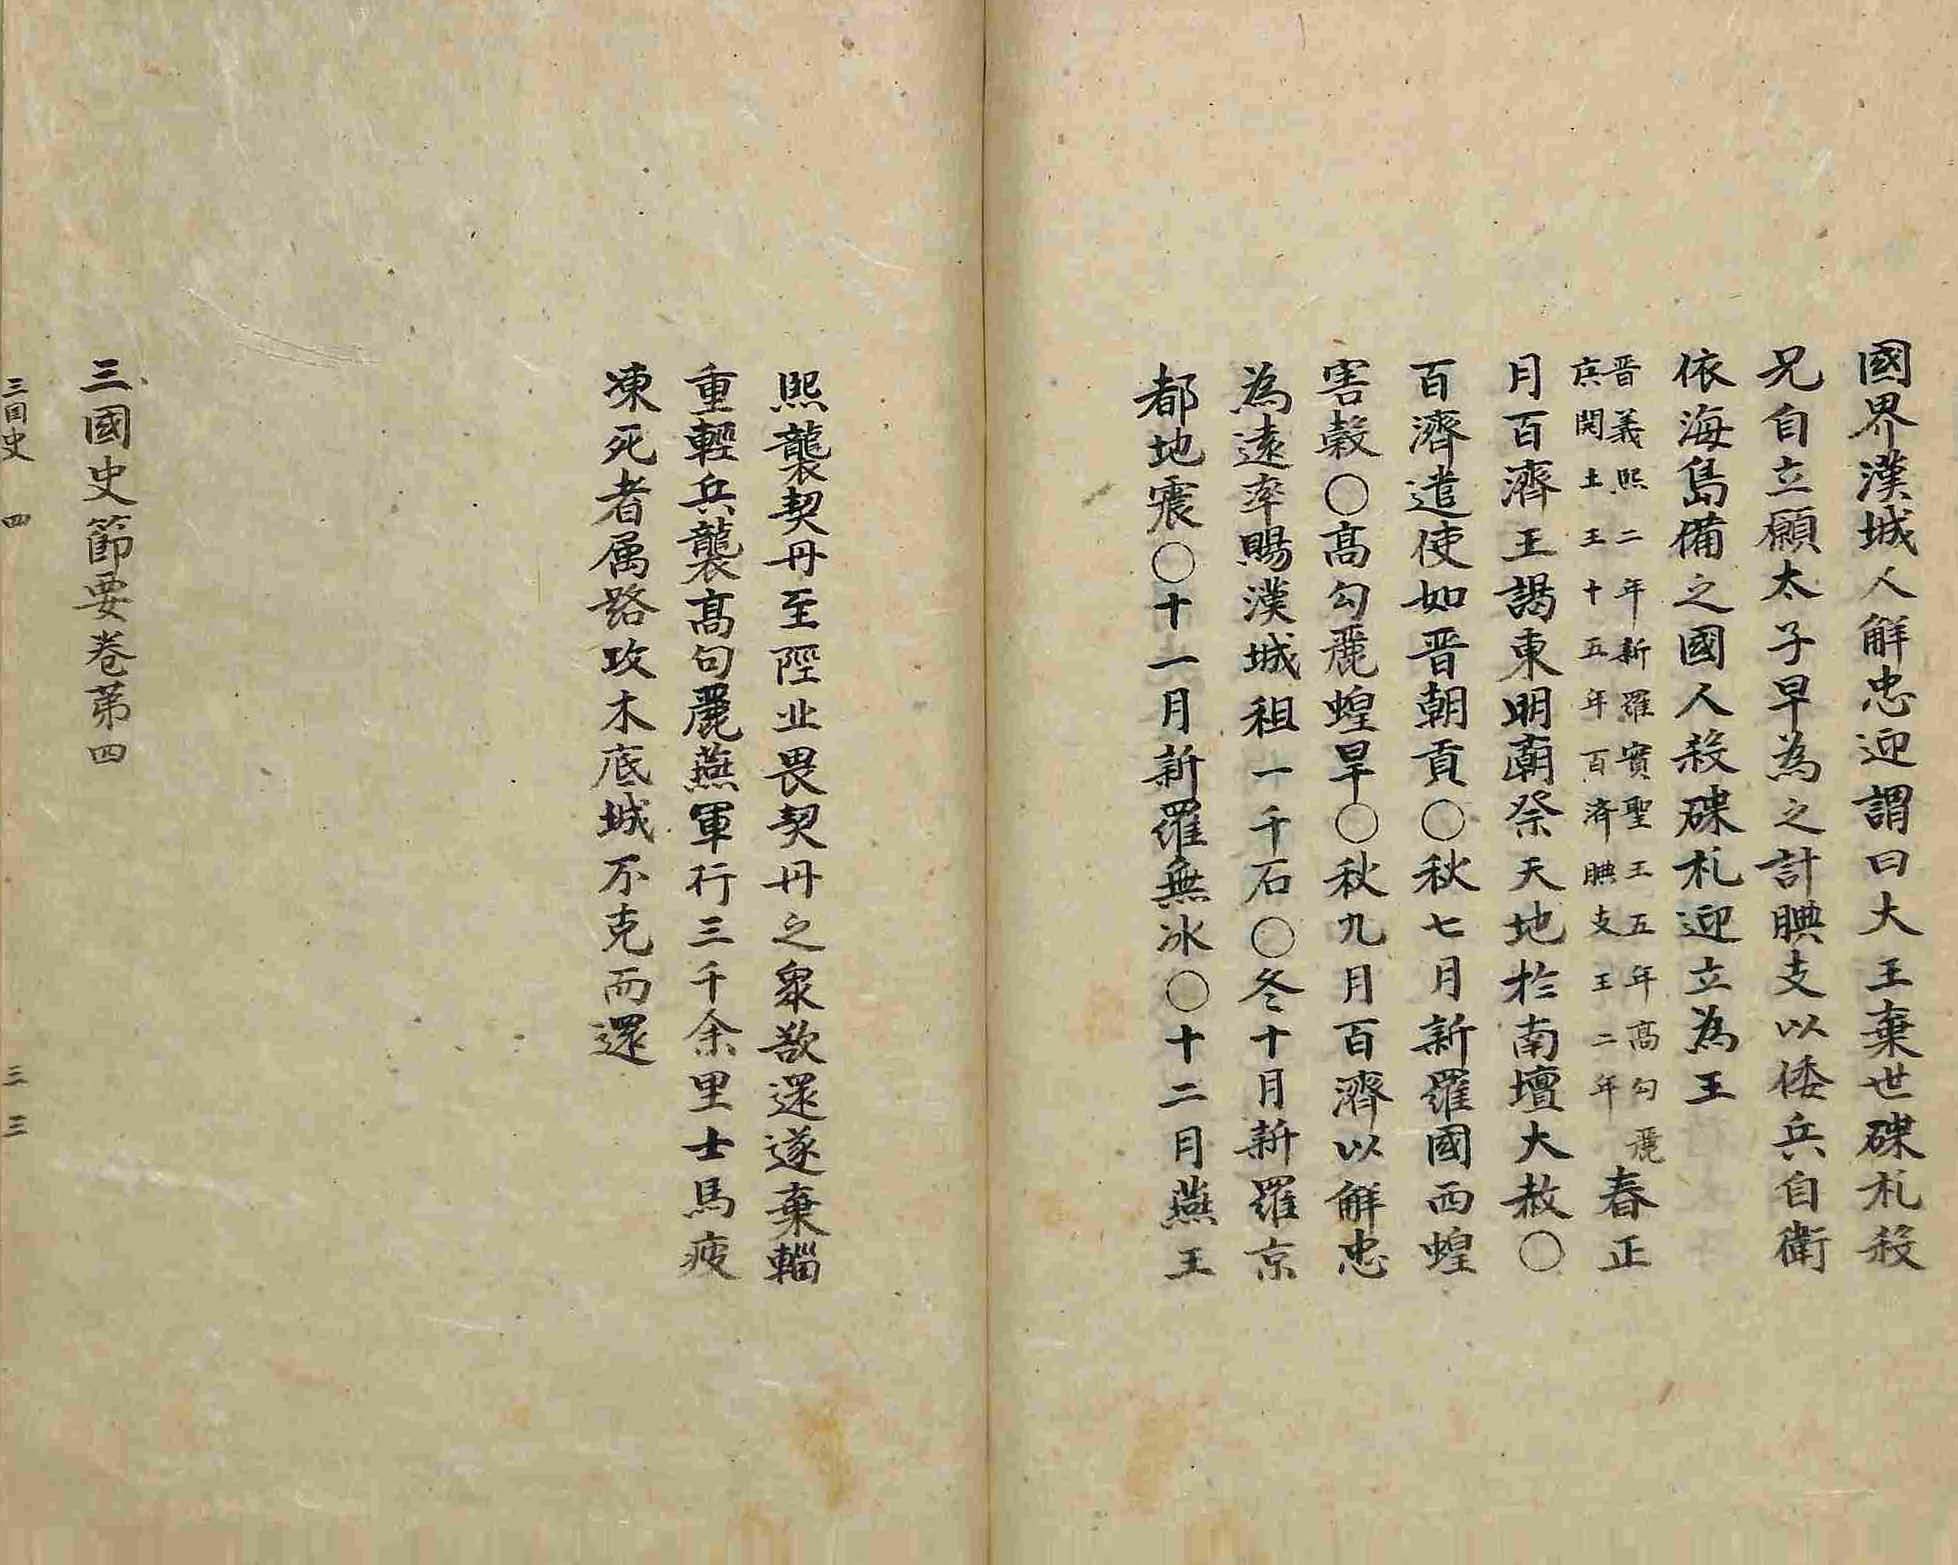 國界漢城人解忠迎謂曰大王棄世碟札殺
兄自立願太子早為之計腆支以倭兵自衛
依海島備之國人殺碟札迎立為王
晋義熙二年新羅實聖王五年高勾麗
広開土王十五年百済腆支王二年
春正
月百濟王謁東明廟祭天地於南壇大赦○
百濟遣使如晋朝貢○秋七月新羅國西蝗
害穀○高勾麗蝗旱○秋九月百濟以解忠
為逺率賜漢城租一千石○冬十月新羅京
都地震○十一月新羅無冰○十二月燕王
熙襲契丹至陘北畏契丹之衆欲還遂棄輜
重輕兵襲高句麗燕軍行三千余里士馬疲
凍死者属路攻木底城不克而還
三國史節要卷苐四
三国史 四 三三